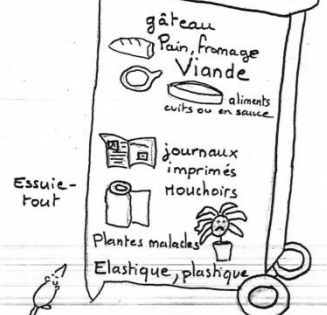 gâteau
Pain, fromage
Viande
aliments
cuits ou en sauce
journaux
imprimés
Mouchoirs
Essuie-
tout
Plantes malades
Elastique, plastique